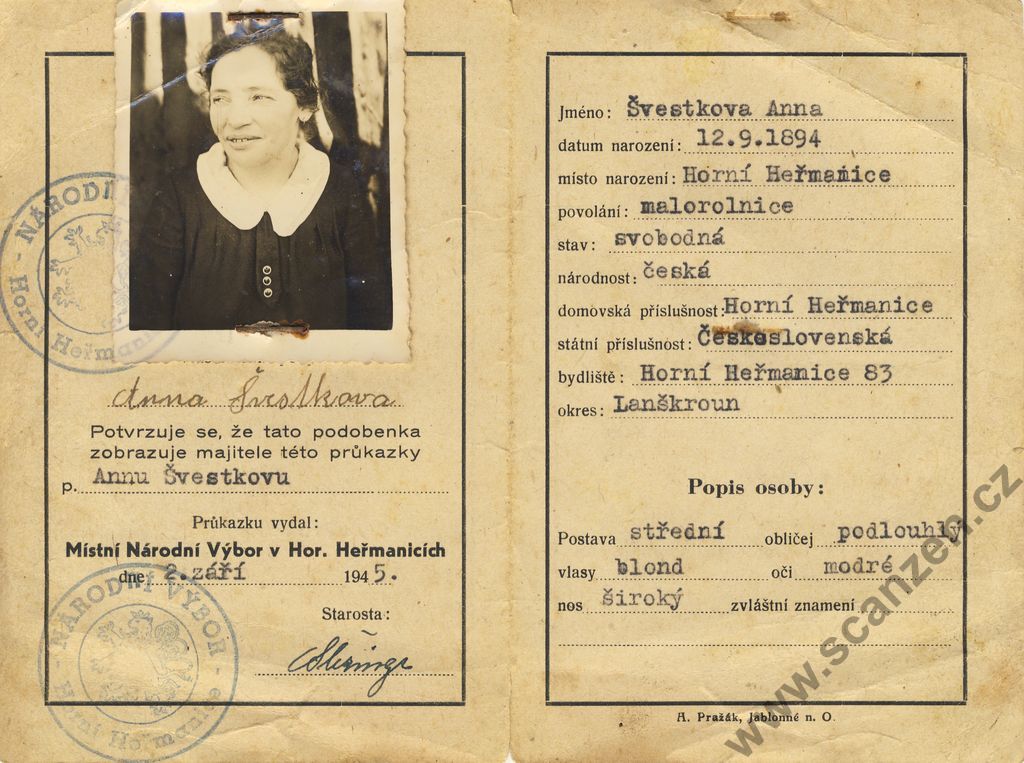 NÁRODNÍ
Horní Heřmani
Anna Švestkova
Potvrzuje se, že tato podobenka
zobrazuje majitele této průkazky
p. Annu Švestkovu
Průkazku vydal:
Místní Národní Výbor v Hor. Heřmanicích
dne 2.září 1945.
Starosta:
- NÁRODNÍ VÝBOR -
Horní Heřmanice
Jméno: Švestkova Anna
datum narození: 12.9.1894
místo narození: Horní Heřmanice
povolání: malorolnice
stav: svobodná
národnost: česká
domovská příslušnost: Horní Heřmanice
státní příslušnost: Československá
bydliště: Horní Heřmanice 83
okres: Lanškroun
Popis osoby:
Postava střední obličej podlouhlý
vlasy blond oči modré
nos široký zvláštní znamení
A. Pražák, Jablonné n. O.
www.scanzen.cz